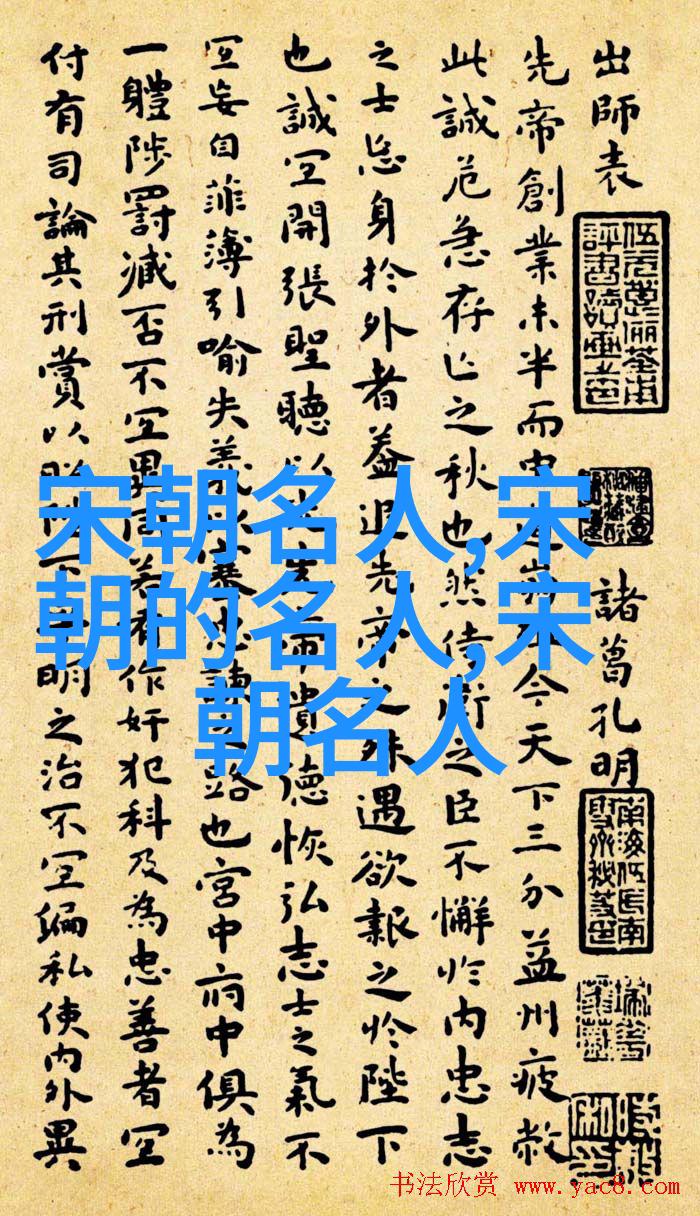 出師表
諸葛孔明
先帝創業未半而中崩今天下三分益州疲敝
此誠危急存亡之秋也然侍衛之臣不懈於內忠志
之士忘身於外者蓋追先帝之殊遇欲報之於陛下
也誠宜開張聖聽以光先帝遺德恢弘志士之氣不
宜妄自菲薄引喻失義以塞忠諫之路也宮中府中俱為
一體陟罰臧否不宜異同若有作奸犯科及為忠善者宜
付有司論其刑賞以昭陛下明之治不宜偏私使內外異
宋朝名人,宋
朝的名人,宋
朝名人
书法欣赏 www.yac8.com